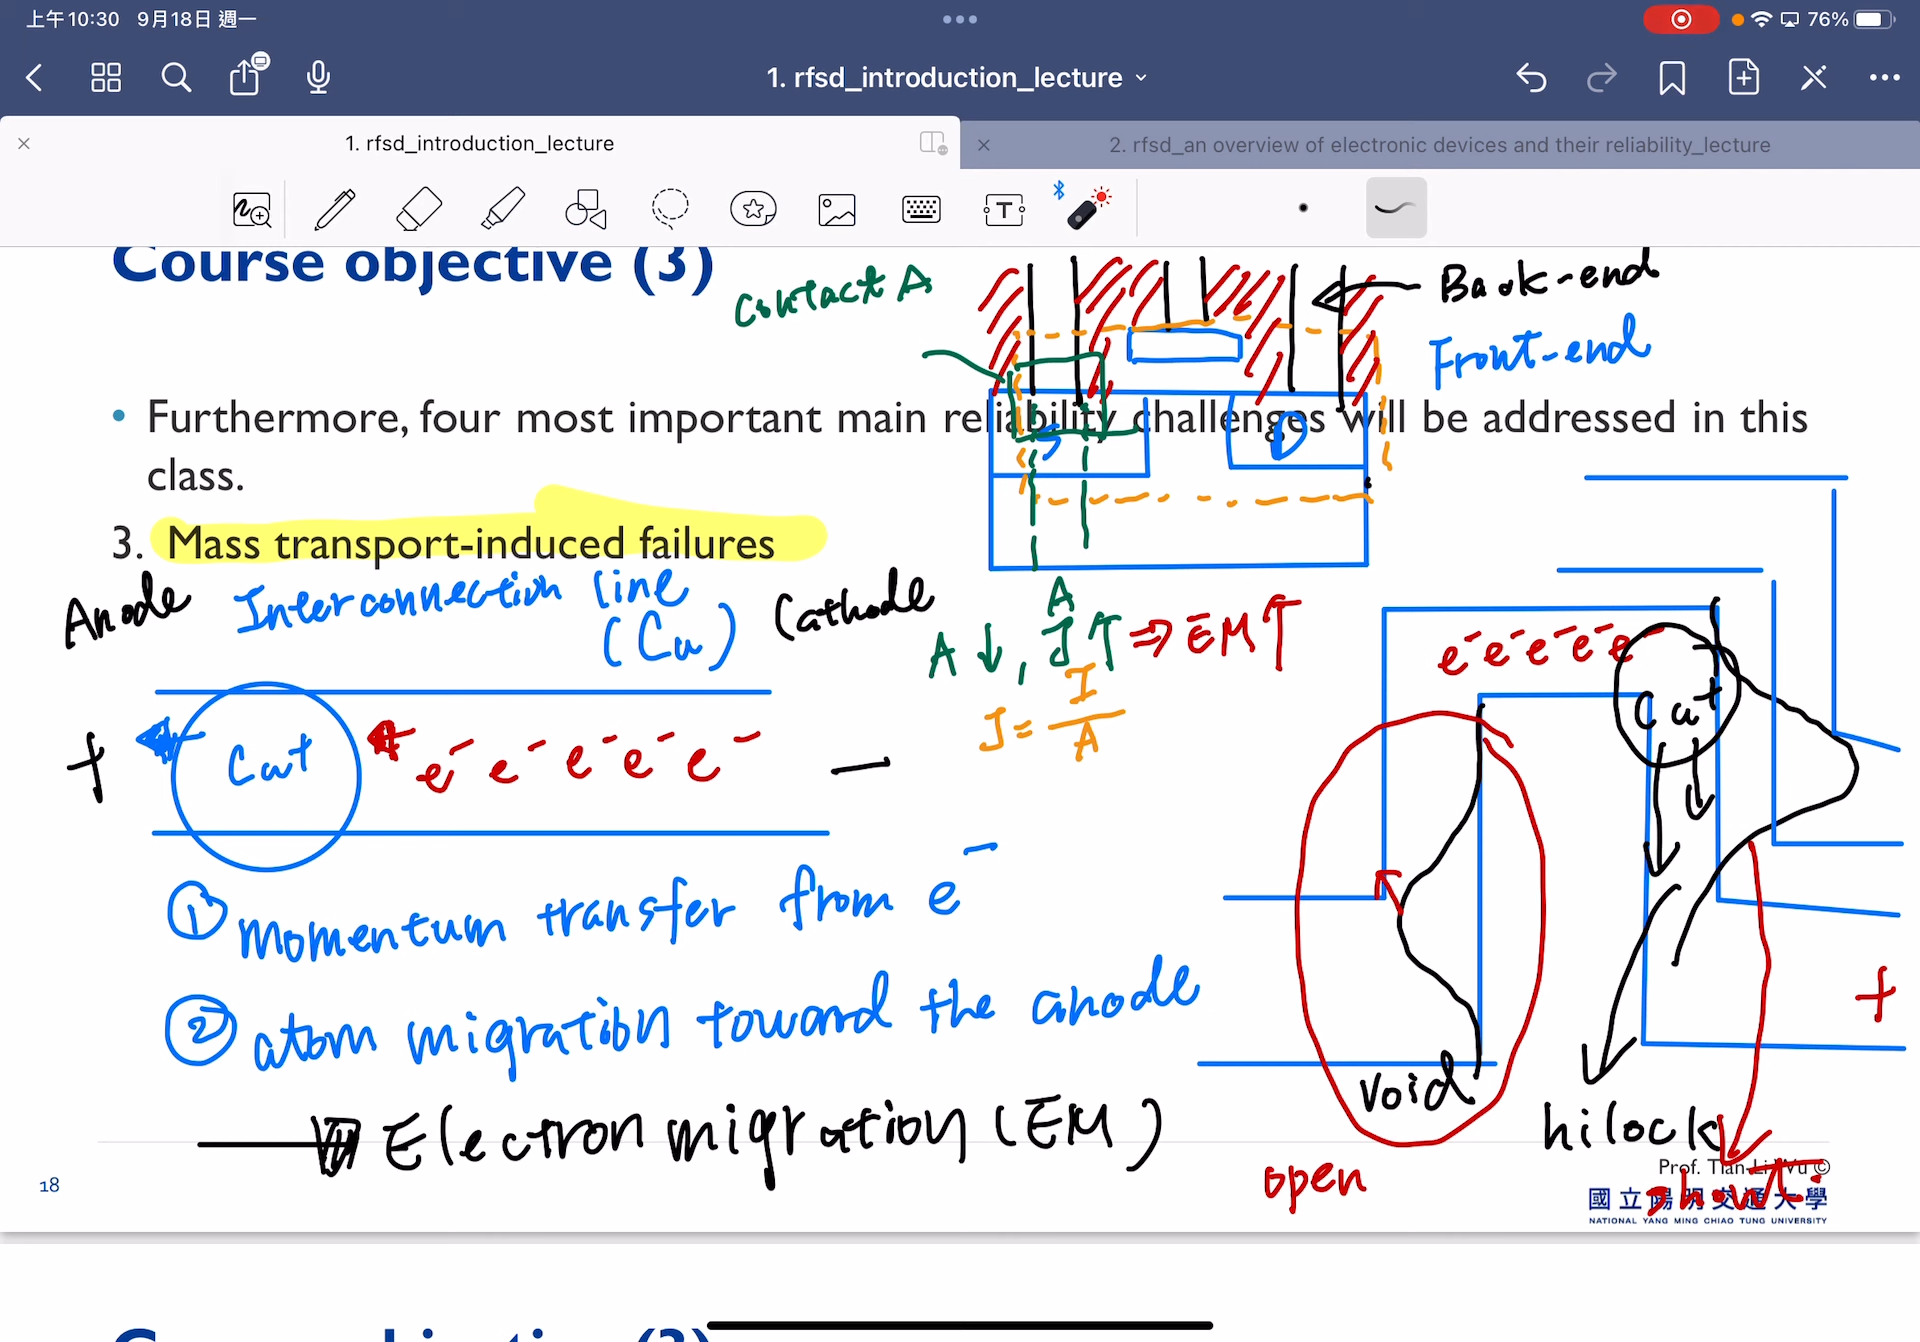 上午10:30 9月18日 週一
76%
1. rfsd_introduction_lecture
1. rfsd_introduction_lecture
2. rfsd_an overview of electronic devices and their reliability_lecture
T
Course objective (3)
Contact A
Back-end
Front-end
• Furthermore, four most important main reliability challenges will be addressed in this
class.
S
D
3. Mass transport-induced failures
Anode
Interconnection line
(Cu)
Cathode
A
A↓, J↑ ⇒ EM↑
J = I/A
+
Cu+
e- e- e- e- e-
−
e- e- e- e- e-
Cu+
① momentum transfer from e-
② atom migration toward the anode
+
Void
hilock
Electron migration (EM)
open
short
18
Prof. Tian-Li Wu ©
國立陽明交通大學
NATIONAL YANG MING CHIAO TUNG UNIVERSITY